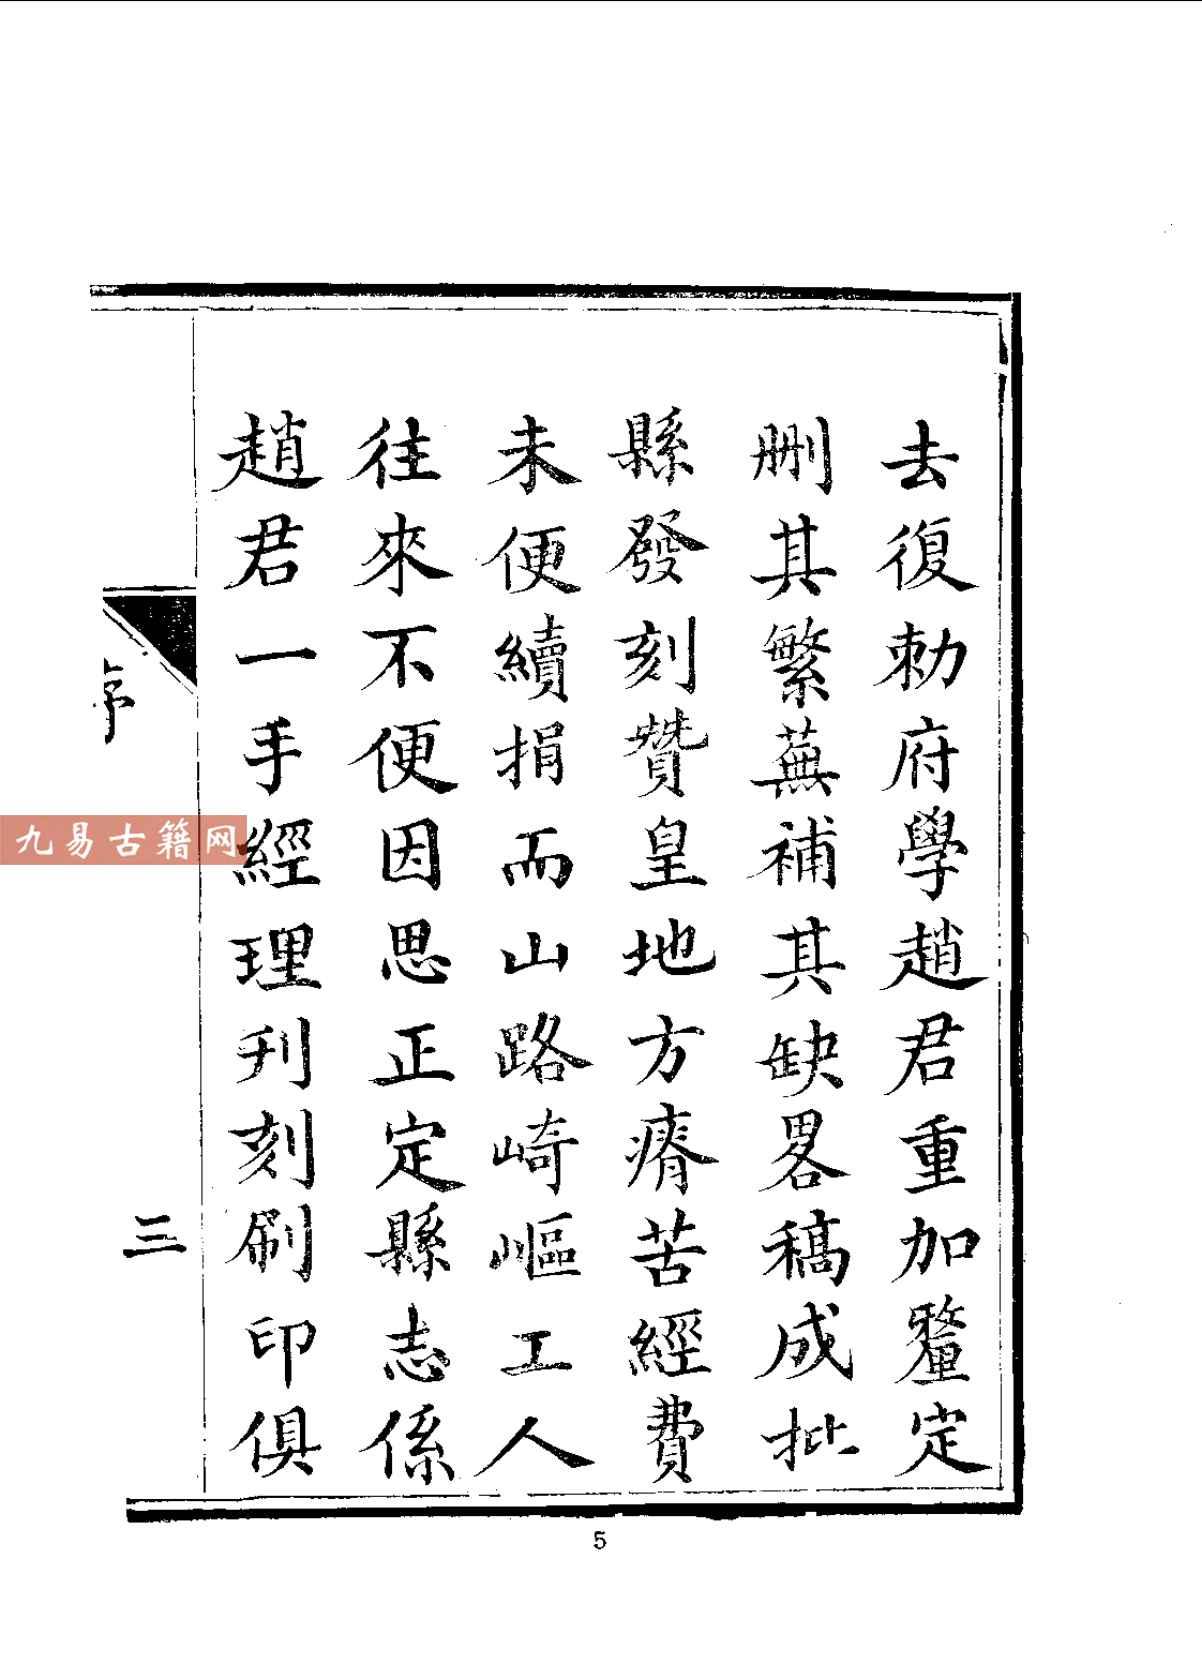 去復勅府學趙君重加釐定
刪其繁蕪補其缺畧稿成批
縣發刻贊皇地方瘠苦經費
未便續捐而山路崎嶇工人
往來不便因思正定縣志係
趙君一手經理刋刻刷印俱
序
三
九易古籍网
5